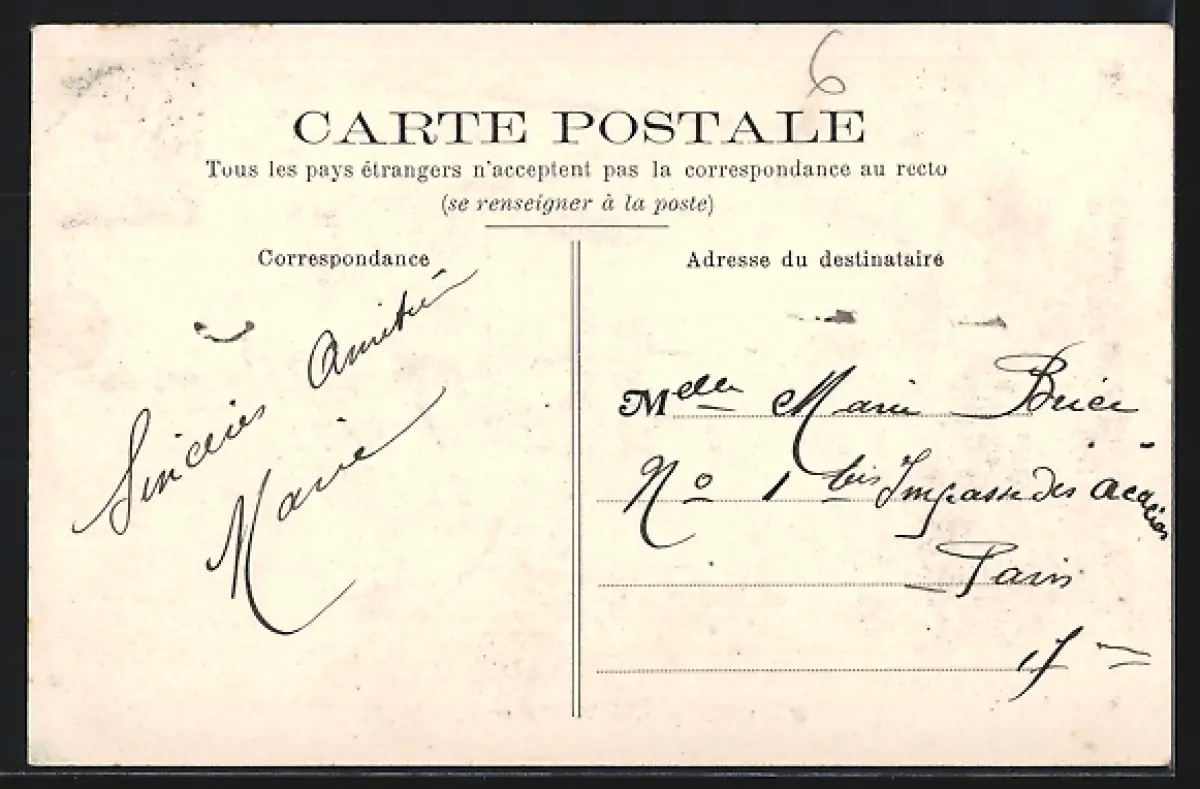 6
CARTE POSTALE
Tous les pays étrangers n'acceptent pas la correspondance au recto
(se renseigner à la poste)
Correspondance
Sincères Amitiés
Marie
Adresse du destinataire
Mdelle Marie Brice
No 1 bis Impasse des Acacias
Paris
17